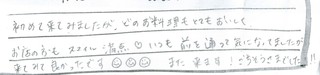 初めて来てみましたが、どのお料理もとてもおいしく
お店の方も スマイル 満点♡ いつも 前を通って気になってましたが
来てみて良かったです ☺☺☺ また 来ます! ごちそうさまでした!!